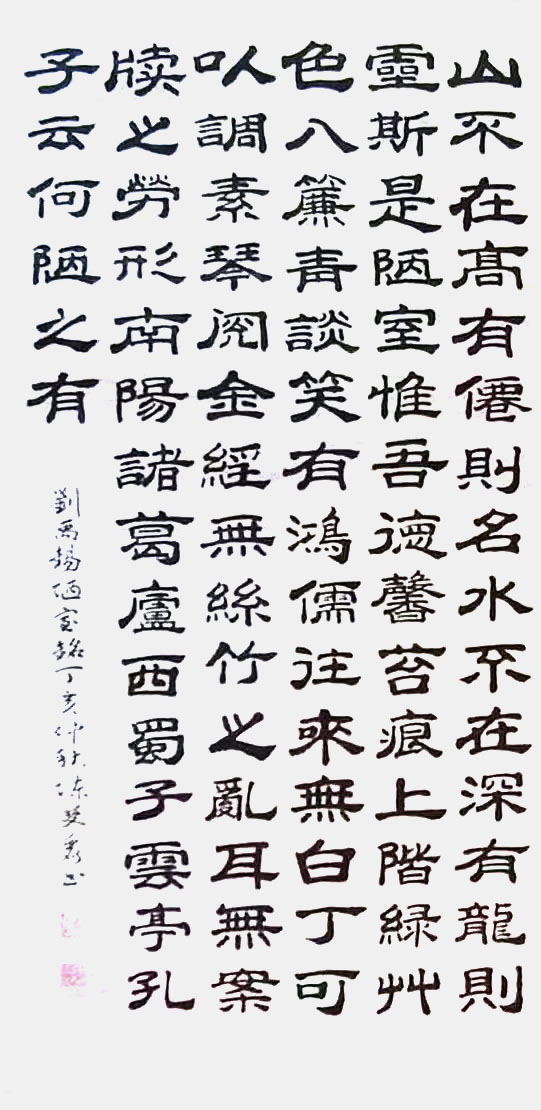 山不在髙有僊則名水不在深有龍則
靈斯是陋室惟吾德馨苔痕上階緑艸
色入簾青談笑有鴻儒往來無白丁可
以調素琴閱金經無絲竹之亂耳無案
牘之勞形南陽諸葛廬西蜀子雲亭孔
子云何陋之有
劉禹錫陋室銘丁亥仲秋陳書